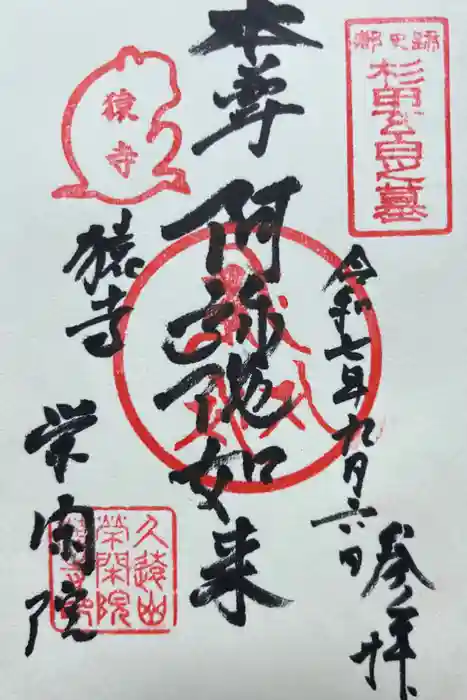 都史跡
杉田玄白之墓
令和七年九月六日
参拝
本尊
阿弥陀如来
猿寺
猿寺
栄閑院
久遠山
栄閑院